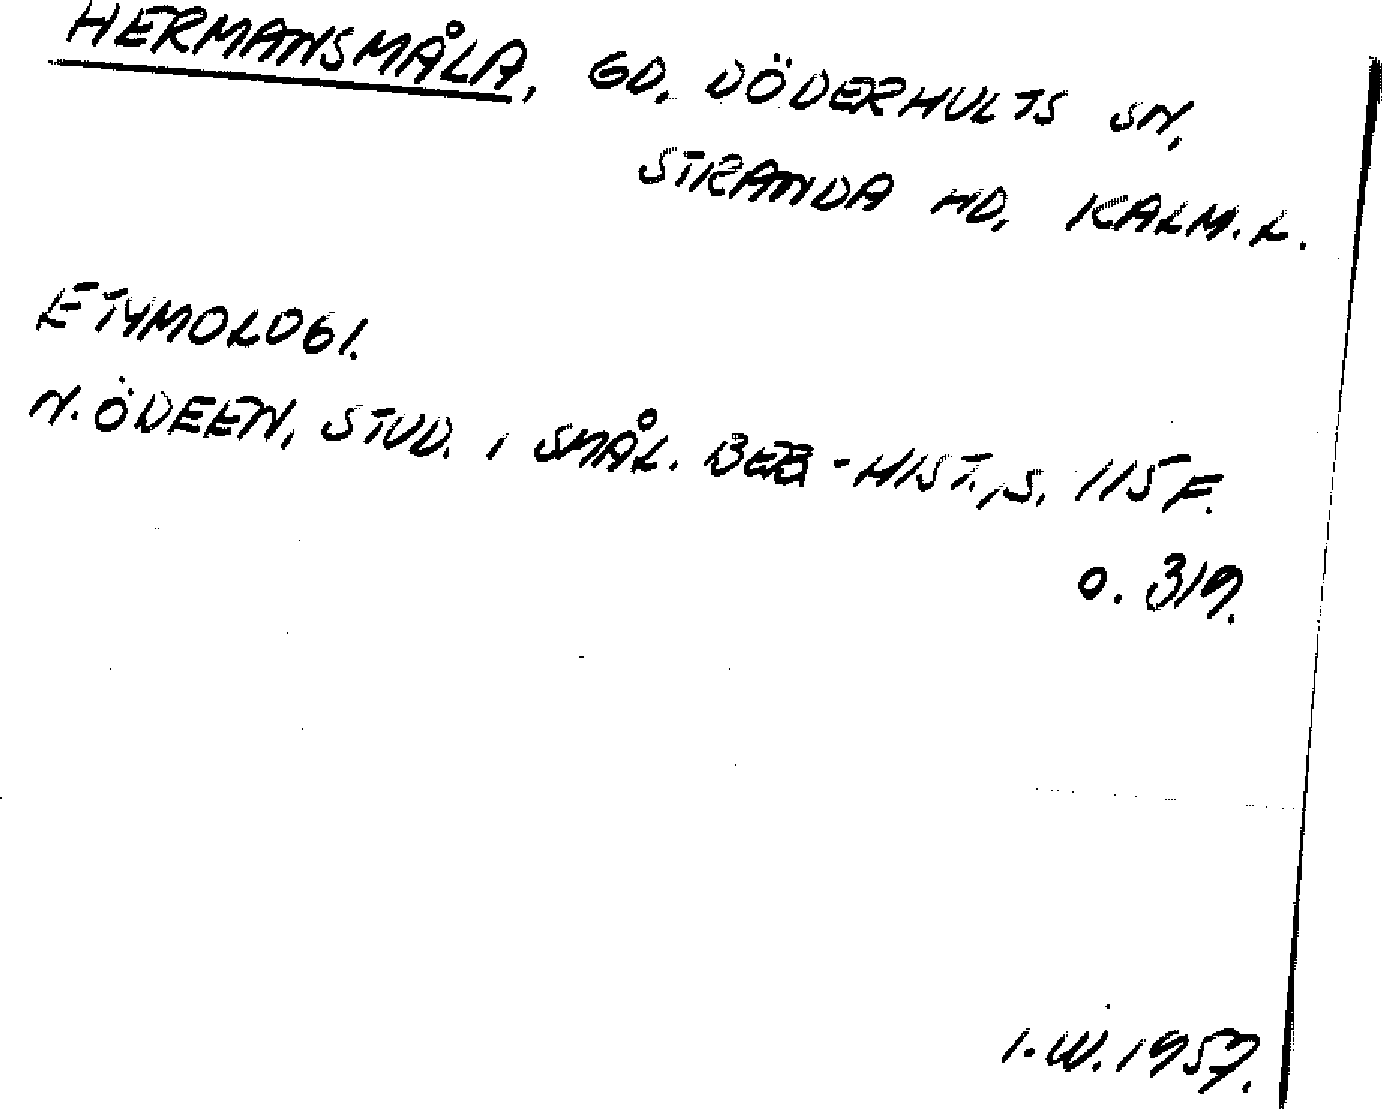 HERMANSMÅLA, GD, DÖDERHULTS SN,
STRANDA HD, KALM.L.
ETYMOLOGI.
N. ÖDEEN, STUD. I SMÅL. BEB-HIST., S. 115 F.
O. 319.
I.W. 1957.